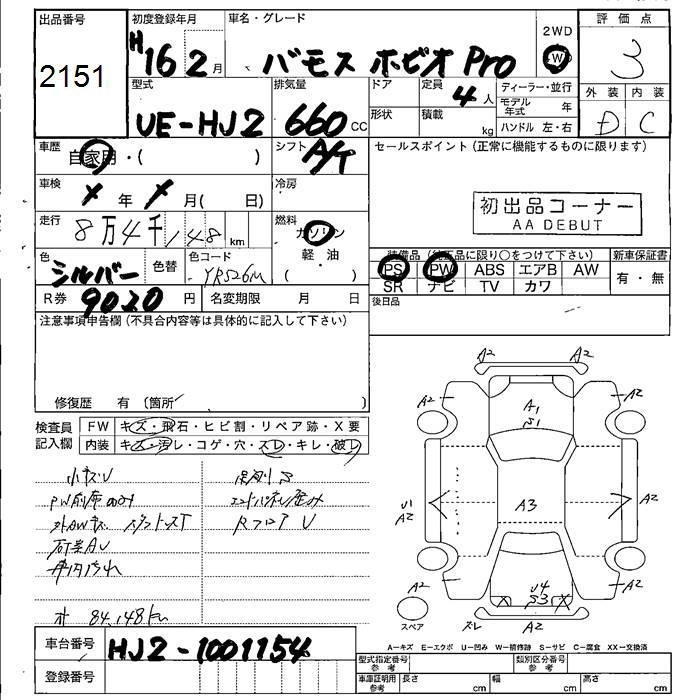 出品番号 初度登録年月 車名・グレード 2WD 評価点
2151 H16 2月 バモス ホビオ Pro 4WD 3
型式 排気量 ドア 定員 ディーラー・並行 外装 内装
UE-HJ2 660CC 4人 モデル年式 年 D C
形状 積載 kg ハンドル 左・右
車歴 自家用・( ) シフト A/T セールスポイント(正常に機能するものに限ります)
車検 年 月( 日) 冷房
初出品コーナー
AA DEBUT
走行 8万4千148km 燃料 ガソリン
軽・油
( )
色 シルバー 色替 色コード YR526M
装備品(純正品に限り○をつけて下さい) 新車保証書
PS PW ABS エアB AW 有・無
SR ナビ TV カワ
R券 9020円 名変期限 月 日 後日品
注意事項申告欄(不具合内容等は具体的に記入して下さい)
修復歴 有〔箇所 〕
検査員 FW キズ・飛石・ヒビ割・リペア跡・X要
記入欄 内装 キズ・汚レ・コゲ・穴・スレ・キレ・破レ
小キズU
石
RフロアU
オ 84,148km
A2 A2
A2 A2
A1
S1
U1 A2 A3 A2
A2 U4 S3 A2
スペア スレ A2
A-キズ E-エクボ U-凹み W-補修跡 S-サビ C-腐食 XX-交換済
車台番号 HJ2-1001154 型式指定番号 参考 類別区分番号 参考
登録番号 車庫証明用 参考 長さ cm 幅 cm 高さ cm